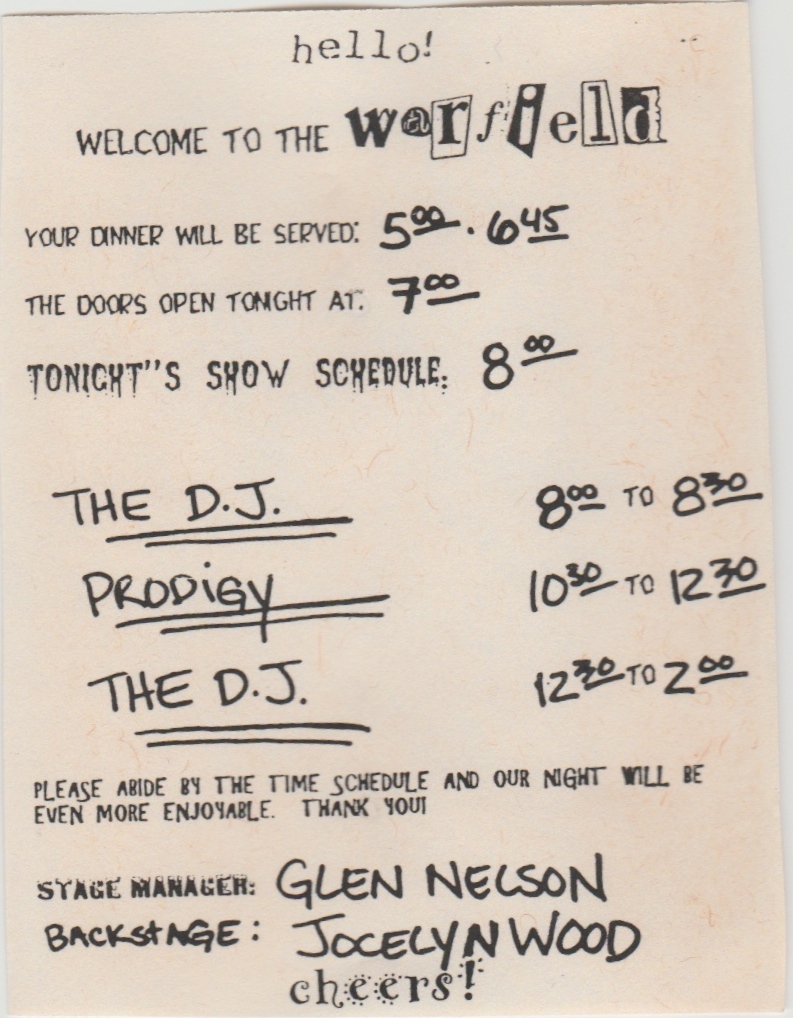 hello!
WELCOME TO THE warfield
YOUR DINNER WILL BE SERVED: 500 . 645
THE DOORS OPEN TONIGHT AT: 700
TONIGHT"S SHOW SCHEDULE: 800
THE D.J. 800 TO 830
PRODIGY 1030 TO 1230
THE D.J. 1230 TO 200
PLEASE ABIDE BY THE TIME SCHEDULE AND OUR NIGHT WILL BE
EVEN MORE ENJOYABLE. THANK YOU!
STAGE MANAGER: GLEN NELSON
BACKSTAGE: JOCELYN WOOD
cheers!